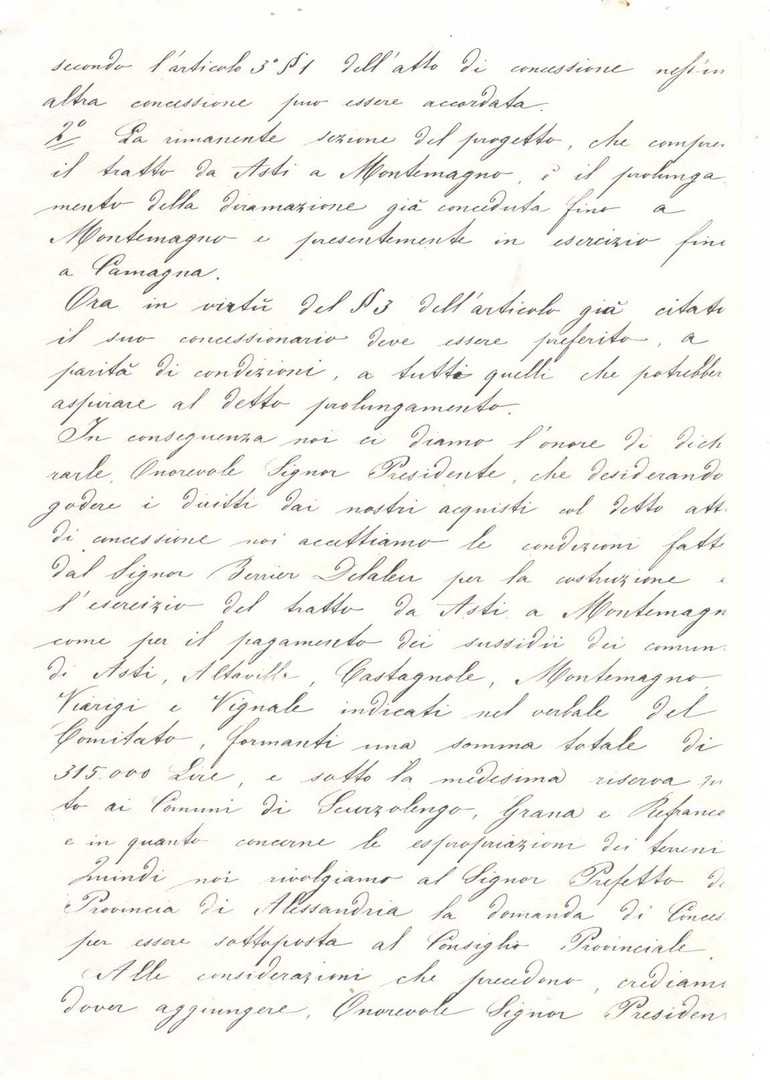 secondo l'articolo 3° §§ 1 dell'atto di concessione ness'un
altra concessione puo essere accordata.
2° La rimanente sezione del progetto, che compre
il tratto da Asti a Montemagno, è il prolunga
mento della diramazione già conceduta fino a
Montemagno e presentemente in esercizio fino
a Camagna.
Ora in virtù del §§ 3 dell'articolo già citato
il suo concessionario deve essere preferito, a
parità di condizioni, a tutti quelli che potrebber
aspirare al detto prolungamento.
In conseguenza noi ci diamo l'onore di dich
rarle, Onorevole Signor Presidente, che desiderando
godere i diritti dai nostri acquisti col detto att
di concessione noi accettiamo le condizioni fatte
dal Signor Berrier Delaleu per la costruzione e
l'esercizio del tratto da Asti a Montemagn
come per il pagamento dei sussidii dei comun
di Asti, Altavilla, Castagnole, Montemagno,
Viarigi e Vignale indicati nel verbale del
Comitato, formanti una somma totale di
315.000 Lire, e sotto la medesima riserva qu
to ai Comuni di Scurzolengo, Grana e Refranco
e in quanto concerne le espropriazioni dei terreni
Quindi noi rivolgiamo al Signor Prefetto de
Provincia di Alessandria la domanda di Conces
per essere sottoposta al Consiglio Provinciale.
Alle considerazioni che precedono, crediamo
dover aggiungere, Onorevole Signor Presiden